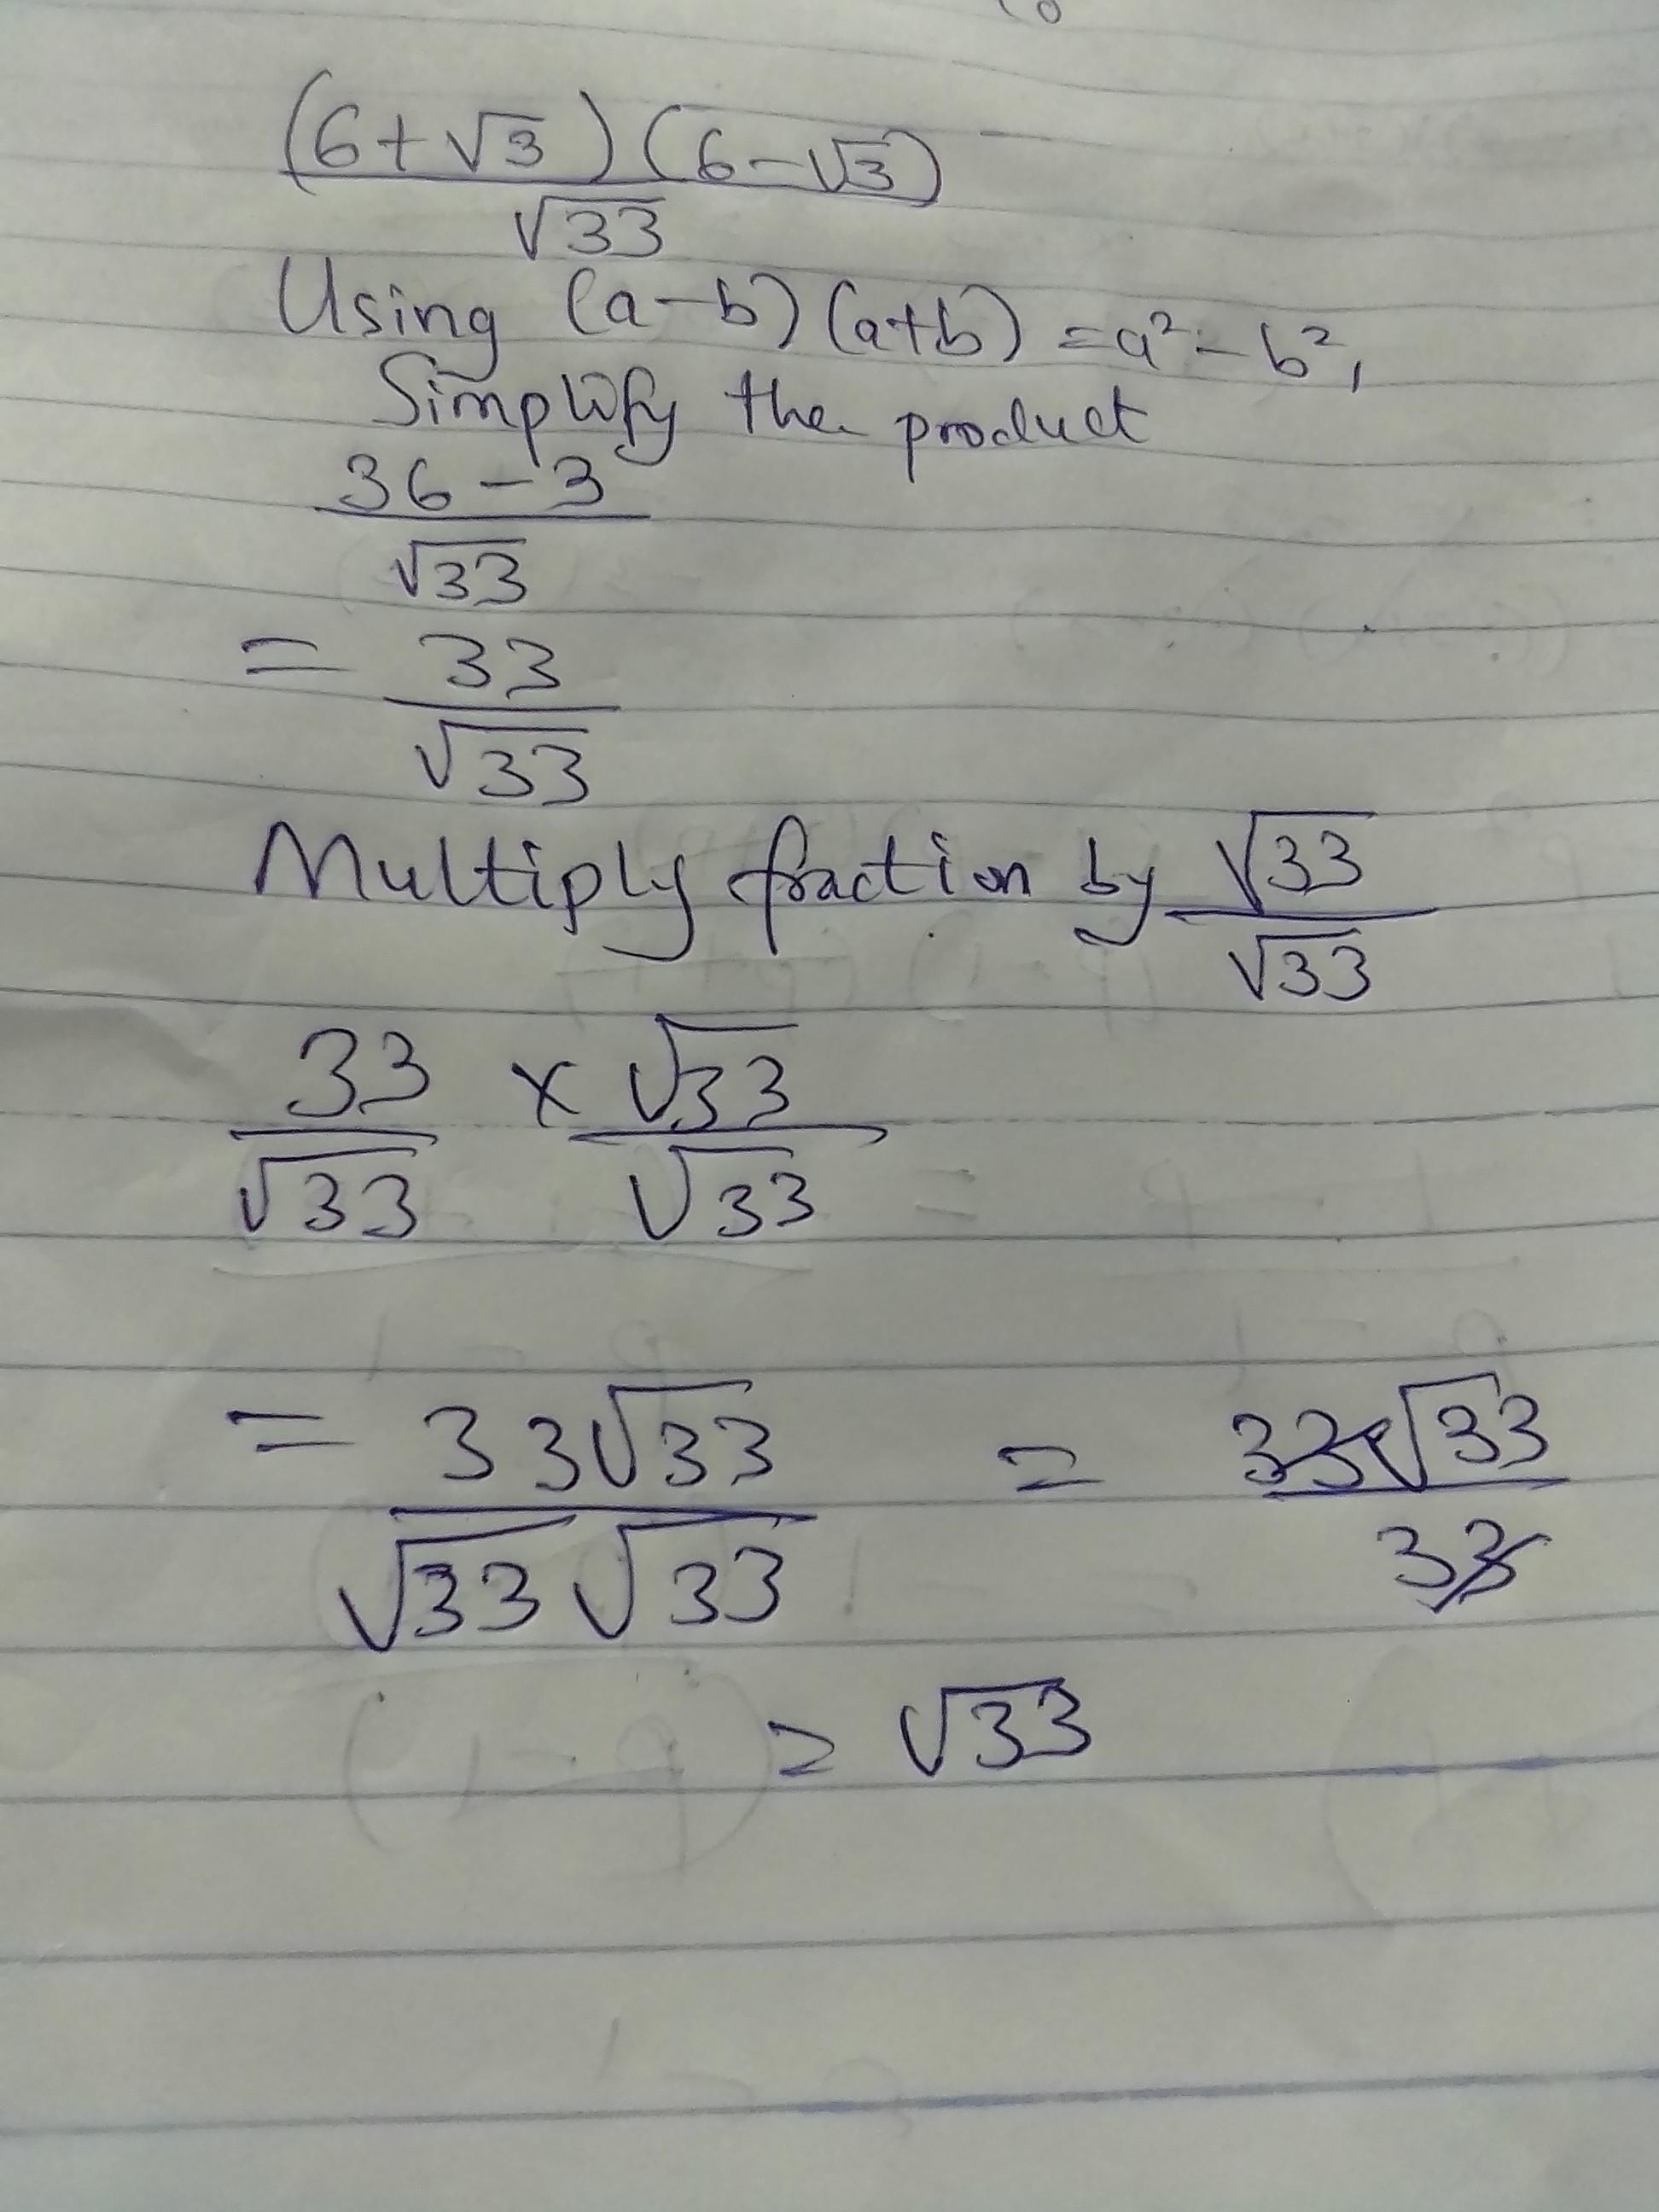 (6+√3)(6-√3)
√33
Using (a-b)(a+b) = a² - b²,
Simplify the product
36-3
√33
= 33
√33
Multiply fraction by √33
√33
33 × √33
√33 √33
= 33√33 = 33√33
√33√33 33
= √33